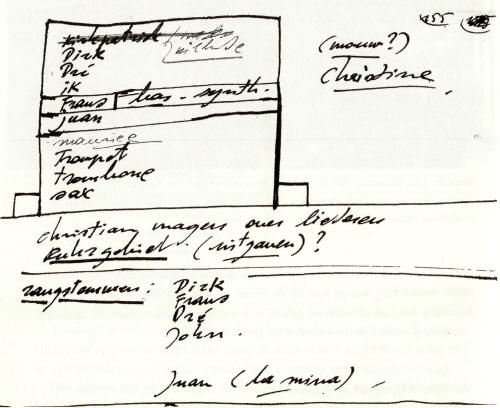 455
Dirk
Dré
ik
Frans bas-synth.
Juan
maurice
Trompet
trombone
sax
(mouw?)
Christine
christian vragen over liederen
Ruhrgebied (uitgaven)?
zangstemmen: Dirk
Frans
Dré
John.
Juan (La mina)